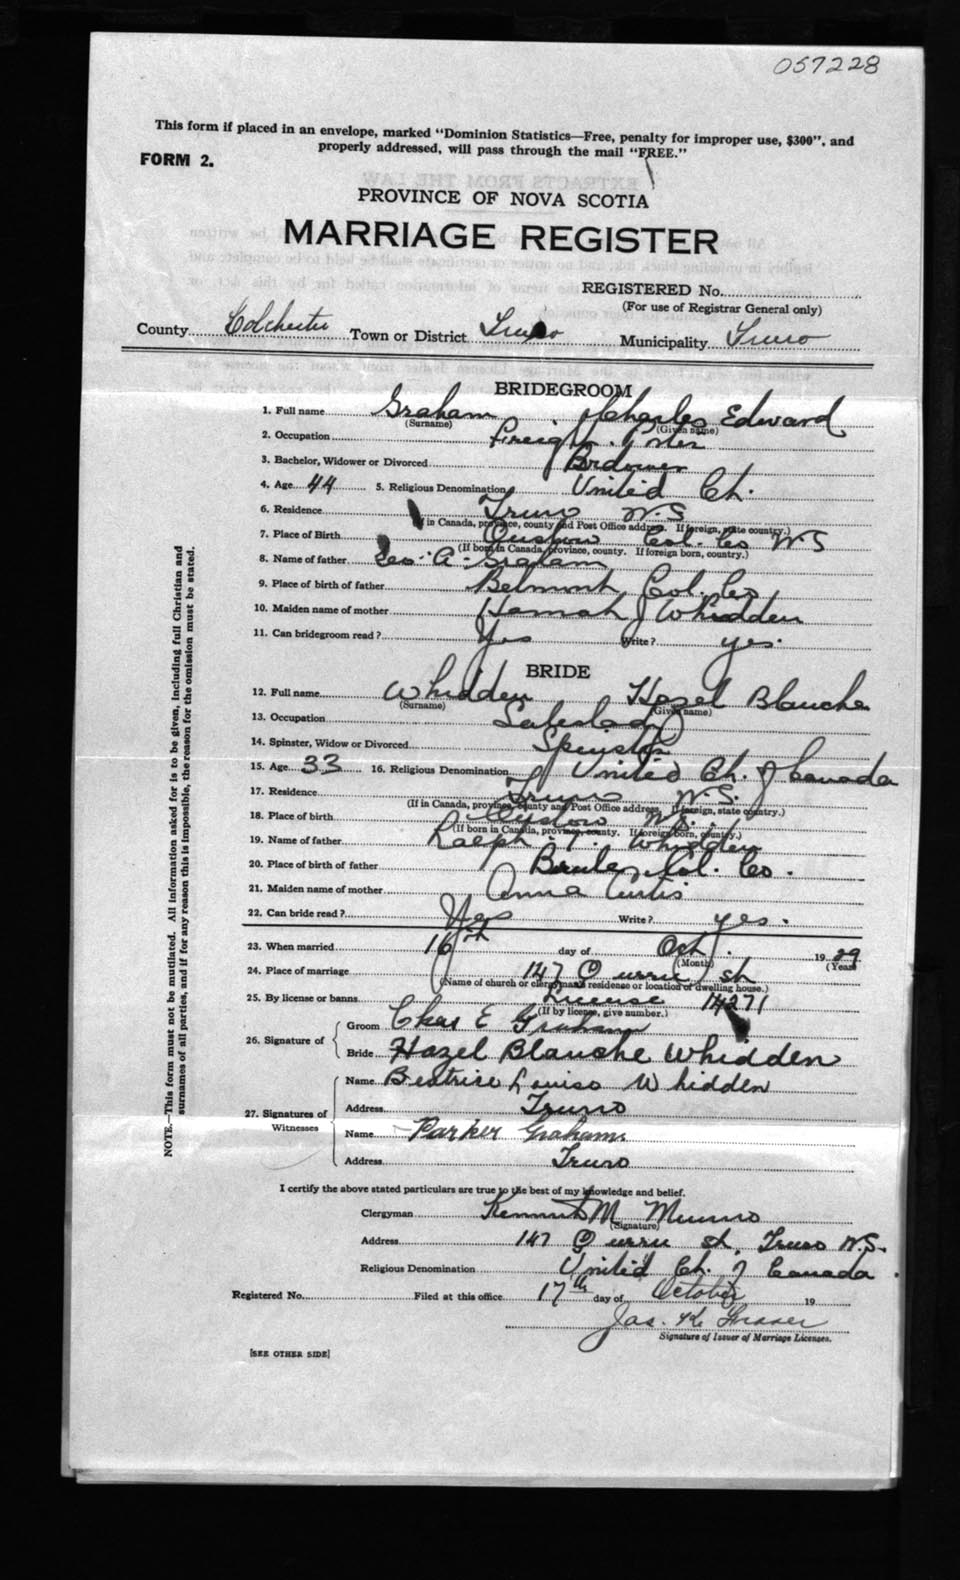 057228
This form if placed in an envelope, marked "Dominion Statistics—Free, penalty for improper use, $300", and
properly addressed, will pass through the mail "FREE."
FORM 2.
PROVINCE OF NOVA SCOTIA
MARRIAGE REGISTER
REGISTERED No.
(For use of Registrar General only)
County Colchester Town or District Truro Municipality Truro
BRIDEGROOM
1. Full name Graham Charles Edward
(Surname) (Given name)
2. Occupation Freight Porter
3. Bachelor, Widower or Divorced Widower
4. Age 44 5. Religious Denomination United Ch.
6. Residence Truro N.S
(If in Canada, province, county and Post Office address. If foreign, state country.)
7. Place of Birth Onslow Col. Co N.S
(If born in Canada, province, county. If foreign born, country.)
8. Name of father Geo. A. Graham
9. Place of birth of father Belmont Col. Co
10. Maiden name of mother Hannah J Whidden
11. Can bridegroom read? Yes Write? yes.
BRIDE
12. Full name Whidden Hazel Blanche
(Surname) (Given name)
13. Occupation Saleslady
14. Spinster, Widow or Divorced Spinster
15. Age 33 16. Religious Denomination United Ch. of Canada
17. Residence Truro N.S.
(If in Canada, province, county and Post Office address. If foreign, state country.)
18. Place of birth Onslow N.S.
(If born in Canada, province, county. If foreign born, country.)
19. Name of father Ralph Whidden
20. Place of birth of father Brule Col. Co.
21. Maiden name of mother Anna Curtis
22. Can bride read? Yes Write? yes.
23. When married 16th day of Oct. 19 29
(Month) (Year)
24. Place of marriage 147 Queen st
(Name of church or clergyman's residence or location of dwelling house.)
25. By license or banns License 14271
(If by license, give number.)
26. Signature of
Groom Chas E Graham
Bride Hazel Blanche Whidden
27. Signatures of Witnesses
Name Beatrice Louise Whidden
Address Truro
Name Parker Graham
Address Truro
I certify the above stated particulars are true to the best of my knowledge and belief.
Clergyman Kenneth M Munro
(Signature)
Address 147 Queen st, Truro N.S.
Religious Denomination United Ch. of Canada.
Registered No. Filed at this office 17th day of October 19
Jas. K Fraser
Signature of Issuer of Marriage Licenses.
[SEE OTHER SIDE]
NOTE.—This form must not be mutilated. All information asked for is to be given, including full Christian and
surnames of all parties, and if for any reason this is impossible, the reason for the omission must be stated.